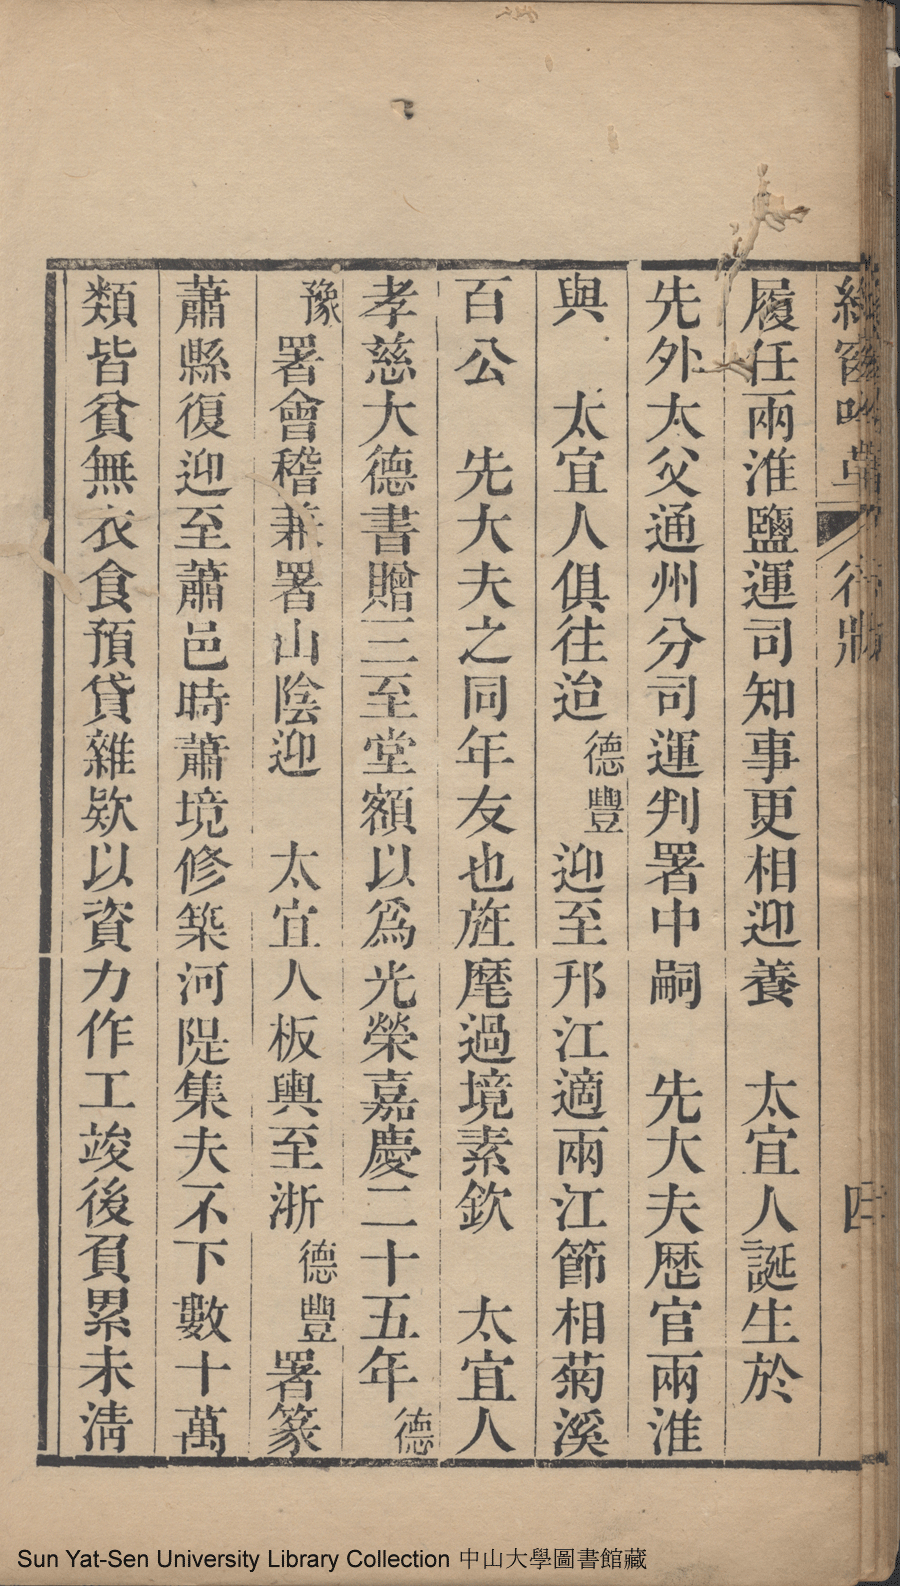 履任兩淮鹽運司知事更相迎養　太宜人誕生於
先外太父通州分司運判署中嗣　先大夫歷官兩淮
與　太宜人俱往迨德豐迎至邗江適兩江節相菊溪
百公　先大夫之同年友也旌麾過境素欽　太宜人
孝慈大德書贈三至堂額以爲光榮嘉慶二十五年德
豫署會稽兼署山陰迎　太宜人板輿至浙德豐署篆
蕭縣復迎至蕭邑時蕭境修築河隄集夫不下數十萬
類皆貧無衣食預貸雜欵以資力作工竣後負累未淸
行狀
四
Sun Yat-Sen University Library Collection 中山大學圖書館藏